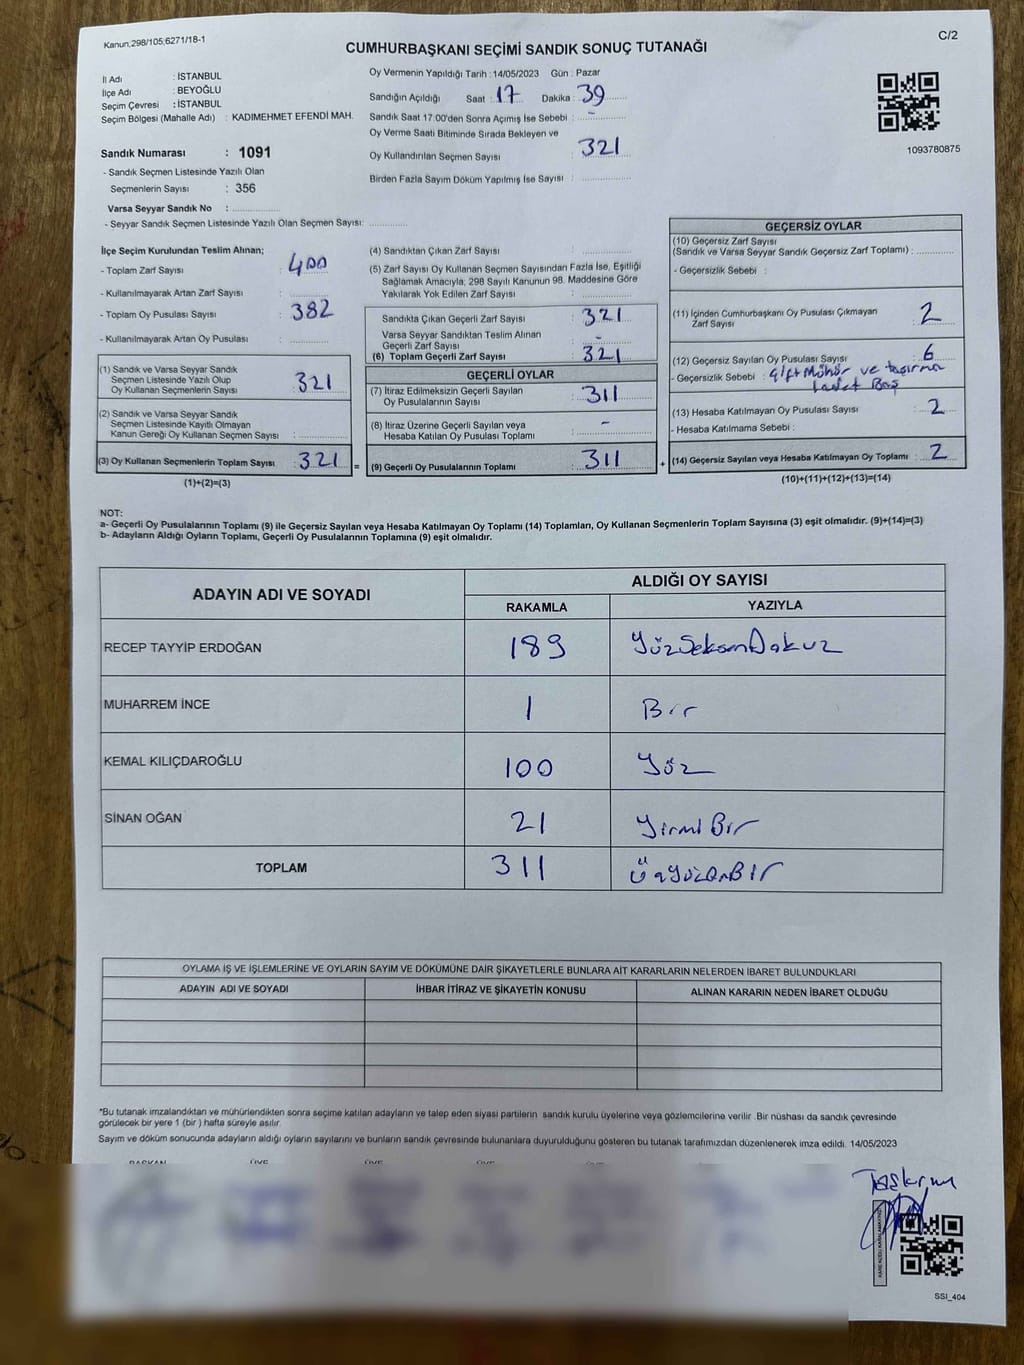 Kanun,298/105;6271/18-1
C/2
CUMHURBAŞKANI SEÇİMİ SANDIK SONUÇ TUTANAĞI
İl Adı : İSTANBUL
İlçe Adı : BEYOĞLU
Seçim Çevresi : İSTANBUL
Seçim Bölgesi (Mahalle Adı) : KADIMEHMET EFENDİ MAH.
Sandık Numarası : 1091
- Sandık Seçmen Listesinde Yazılı Olan
Seçmenlerin Sayısı : 356
Varsa Seyyar Sandık No :
- Seyyar Sandık Seçmen Listesinde Yazılı Olan Seçmen Sayısı:
Oy Vermenin Yapıldığı Tarih : 14/05/2023 Gün : Pazar
Sandığın Açıldığı Saat : 17 Dakika : 39
Sandık Saat 17:00'den Sonra Açımış İse Sebebi : -
Oy Verme Saati Bitiminde Sırada Bekleyen ve
Oy Kullandırılan Seçmen Sayısı : 321
Birden Fazla Sayım Döküm Yapılmış İse Sayısı :
1093780875
İlçe Seçim Kurulundan Teslim Alınan;
- Toplam Zarf Sayısı : 400
- Kullanılmayarak Artan Zarf Sayısı :
- Toplam Oy Pusulası Sayısı : 382
- Kullanılmayarak Artan Oy Pusulası :
(1) Sandık ve Varsa Seyyar Sandık
Seçmen Listesinde Yazılı Olup
Oy Kullanan Seçmenlerin Sayısı : 321
(2) Sandık ve Varsa Seyyar Sandık
Seçmen Listesinde Kayıtlı Olmayan
Kanun Gereği Oy Kullanan Seçmen Sayısı :
(3) Oy Kullanan Seçmenlerin Toplam Sayısı : 321
(1)+(2)=(3)
(4) Sandıktan Çıkan Zarf Sayısı :
(5) Zarf Sayısı Oy Kullanan Seçmen Sayısından Fazla İse, Eşitliği
Sağlamak Amacıyla, 298 Sayılı Kanunun 98. Maddesine Göre
Yakılarak Yok Edilen Zarf Sayısı :
Sandıkta Çıkan Geçerli Zarf Sayısı : 321
Varsa Seyyar Sandıktan Teslim Alınan
Geçerli Zarf Sayısı : -
(6) Toplam Geçerli Zarf Sayısı : 321
GEÇERLİ OYLAR
(7) İtiraz Edilmeksizin Geçerli Sayılan
Oy Pusulalarının Sayısı : 311
(8) İtiraz Üzerine Geçerli Sayılan veya
Hesaba Katılan Oy Pusulası Toplamı : -
= (9) Geçerli Oy Pusulalarının Toplamı : 311 +
GEÇERSİZ OYLAR
(10) Geçersiz Zarf Sayısı
(Sandık ve Varsa Seyyar Sandık Geçersiz Zarf Toplamı) :
- Geçersizlik Sebebi :
(11) İçinden Cumhurbaşkanı Oy Pusulası Çıkmayan
Zarf Sayısı : 2
(12) Geçersiz Sayılan Oy Pusulası Sayısı : 6
- Geçersizlik Sebebi : Çift Mühür ve taşırma
Boş
(13) Hesaba Katılmayan Oy Pusulası Sayısı : 2
- Hesaba Katılmama Sebebi :
(14) Geçersiz Sayılan veya Hesaba Katılmayan Oy Toplamı : 2
(10)+(11)+(12)+(13)=(14)
NOT:
a- Geçerli Oy Pusulalarının Toplamı (9) ile Geçersiz Sayılan veya Hesaba Katılmayan Oy Toplamı (14) Toplamları, Oy Kullanan Seçmenlerin Toplam Sayısına (3) eşit olmalıdır. (9)+(14)=(3)
b- Adayların Aldığı Oyların Toplamı, Geçerli Oy Pusulalarının Toplamına (9) eşit olmalıdır.
ADAYIN ADI VE SOYADI
ALDIĞI OY SAYISI
RAKAMLA YAZIYLA
RECEP TAYYİP ERDOĞAN 189 YüzSeksenDokuz
MUHARREM İNCE 1 Bir
KEMAL KILIÇDAROĞLU 100 Yüz
SİNAN OĞAN 21 YirmiBir
TOPLAM 311 ÜçYüzOnBir
OYLAMA İŞ VE İŞLEMLERİNE VE OYLARIN SAYIM VE DÖKÜMÜNE DAİR ŞİKAYETLERLE BUNLARA AİT KARARLARIN NELERDEN İBARET BULUNDUKLARI
ADAYIN ADI VE SOYADI İHBAR İTİRAZ VE ŞİKAYETİN KONUSU ALINAN KARARIN NEDEN İBARET OLDUĞU
*Bu tutanak imzalandıktan ve mühürlendikten sonra seçime katılan adayların ve talep eden siyasi partilerin sandık kurulu üyelerine veya gözlemcilerine verilir .Bir nüshası da sandık çevresinde
görülecek bir yere 1 (bir ) hafta süreyle asılır.
Sayım ve döküm sonucunda adayların aldığı oyların sayılarını ve bunların sandık çevresinde bulunanlara duyurulduğunu gösteren bu tutanak tarafımızdan düzenlenerek imza edildi. 14/05/2023
BAŞKAN ÜYE ÜYE ÜYE ÜYE
SSI_404